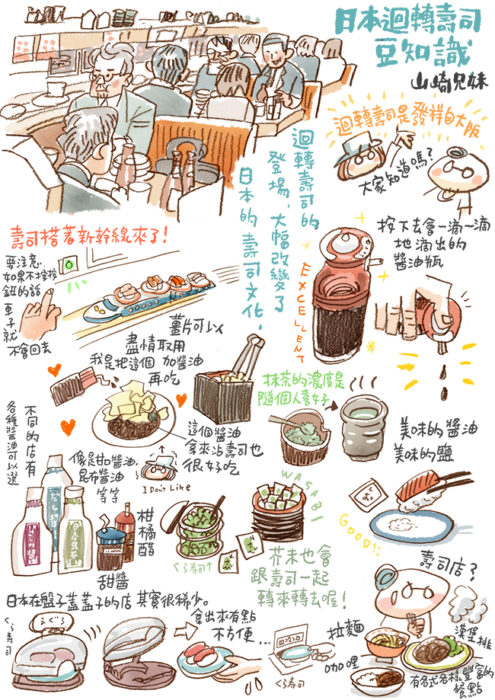 日本迴轉壽司
豆知識
山崎兄妹
迴轉壽司是發祥自大阪
大家知道嗎?
迴轉壽司的
登場,大幅改變了
日本的壽司文化。
EXCELLENT
按下去會一滴一滴
地滴出的
醬油瓶
壽司搭著新幹線來了!
要注意
如果不按按
鈕的話
車子就
不會回去
薑片可以
盡情取用
我是把這個 加醬油
再吃
這個醬油
拿來沾壽司也
很好吃
抹茶的濃度是
隨個人喜好
美味的醬油
美味的鹽
GOOD!!
不同的店有
各種醬油可以選
像是甘加醬油,
昆布醬油
等等
I Don't Like
柑橘醋
甜醬
WASABI
くら寿司
芥末也會
跟壽司一起
轉來轉去喔!
日本在盤子蓋蓋子的店 其實很稀少。
くら寿司
まぐろ
拿出來有點
不方便…
くら寿司
壽司店?
拉麵
咖哩
漢堡排
有各式各樣豐富的
餐點